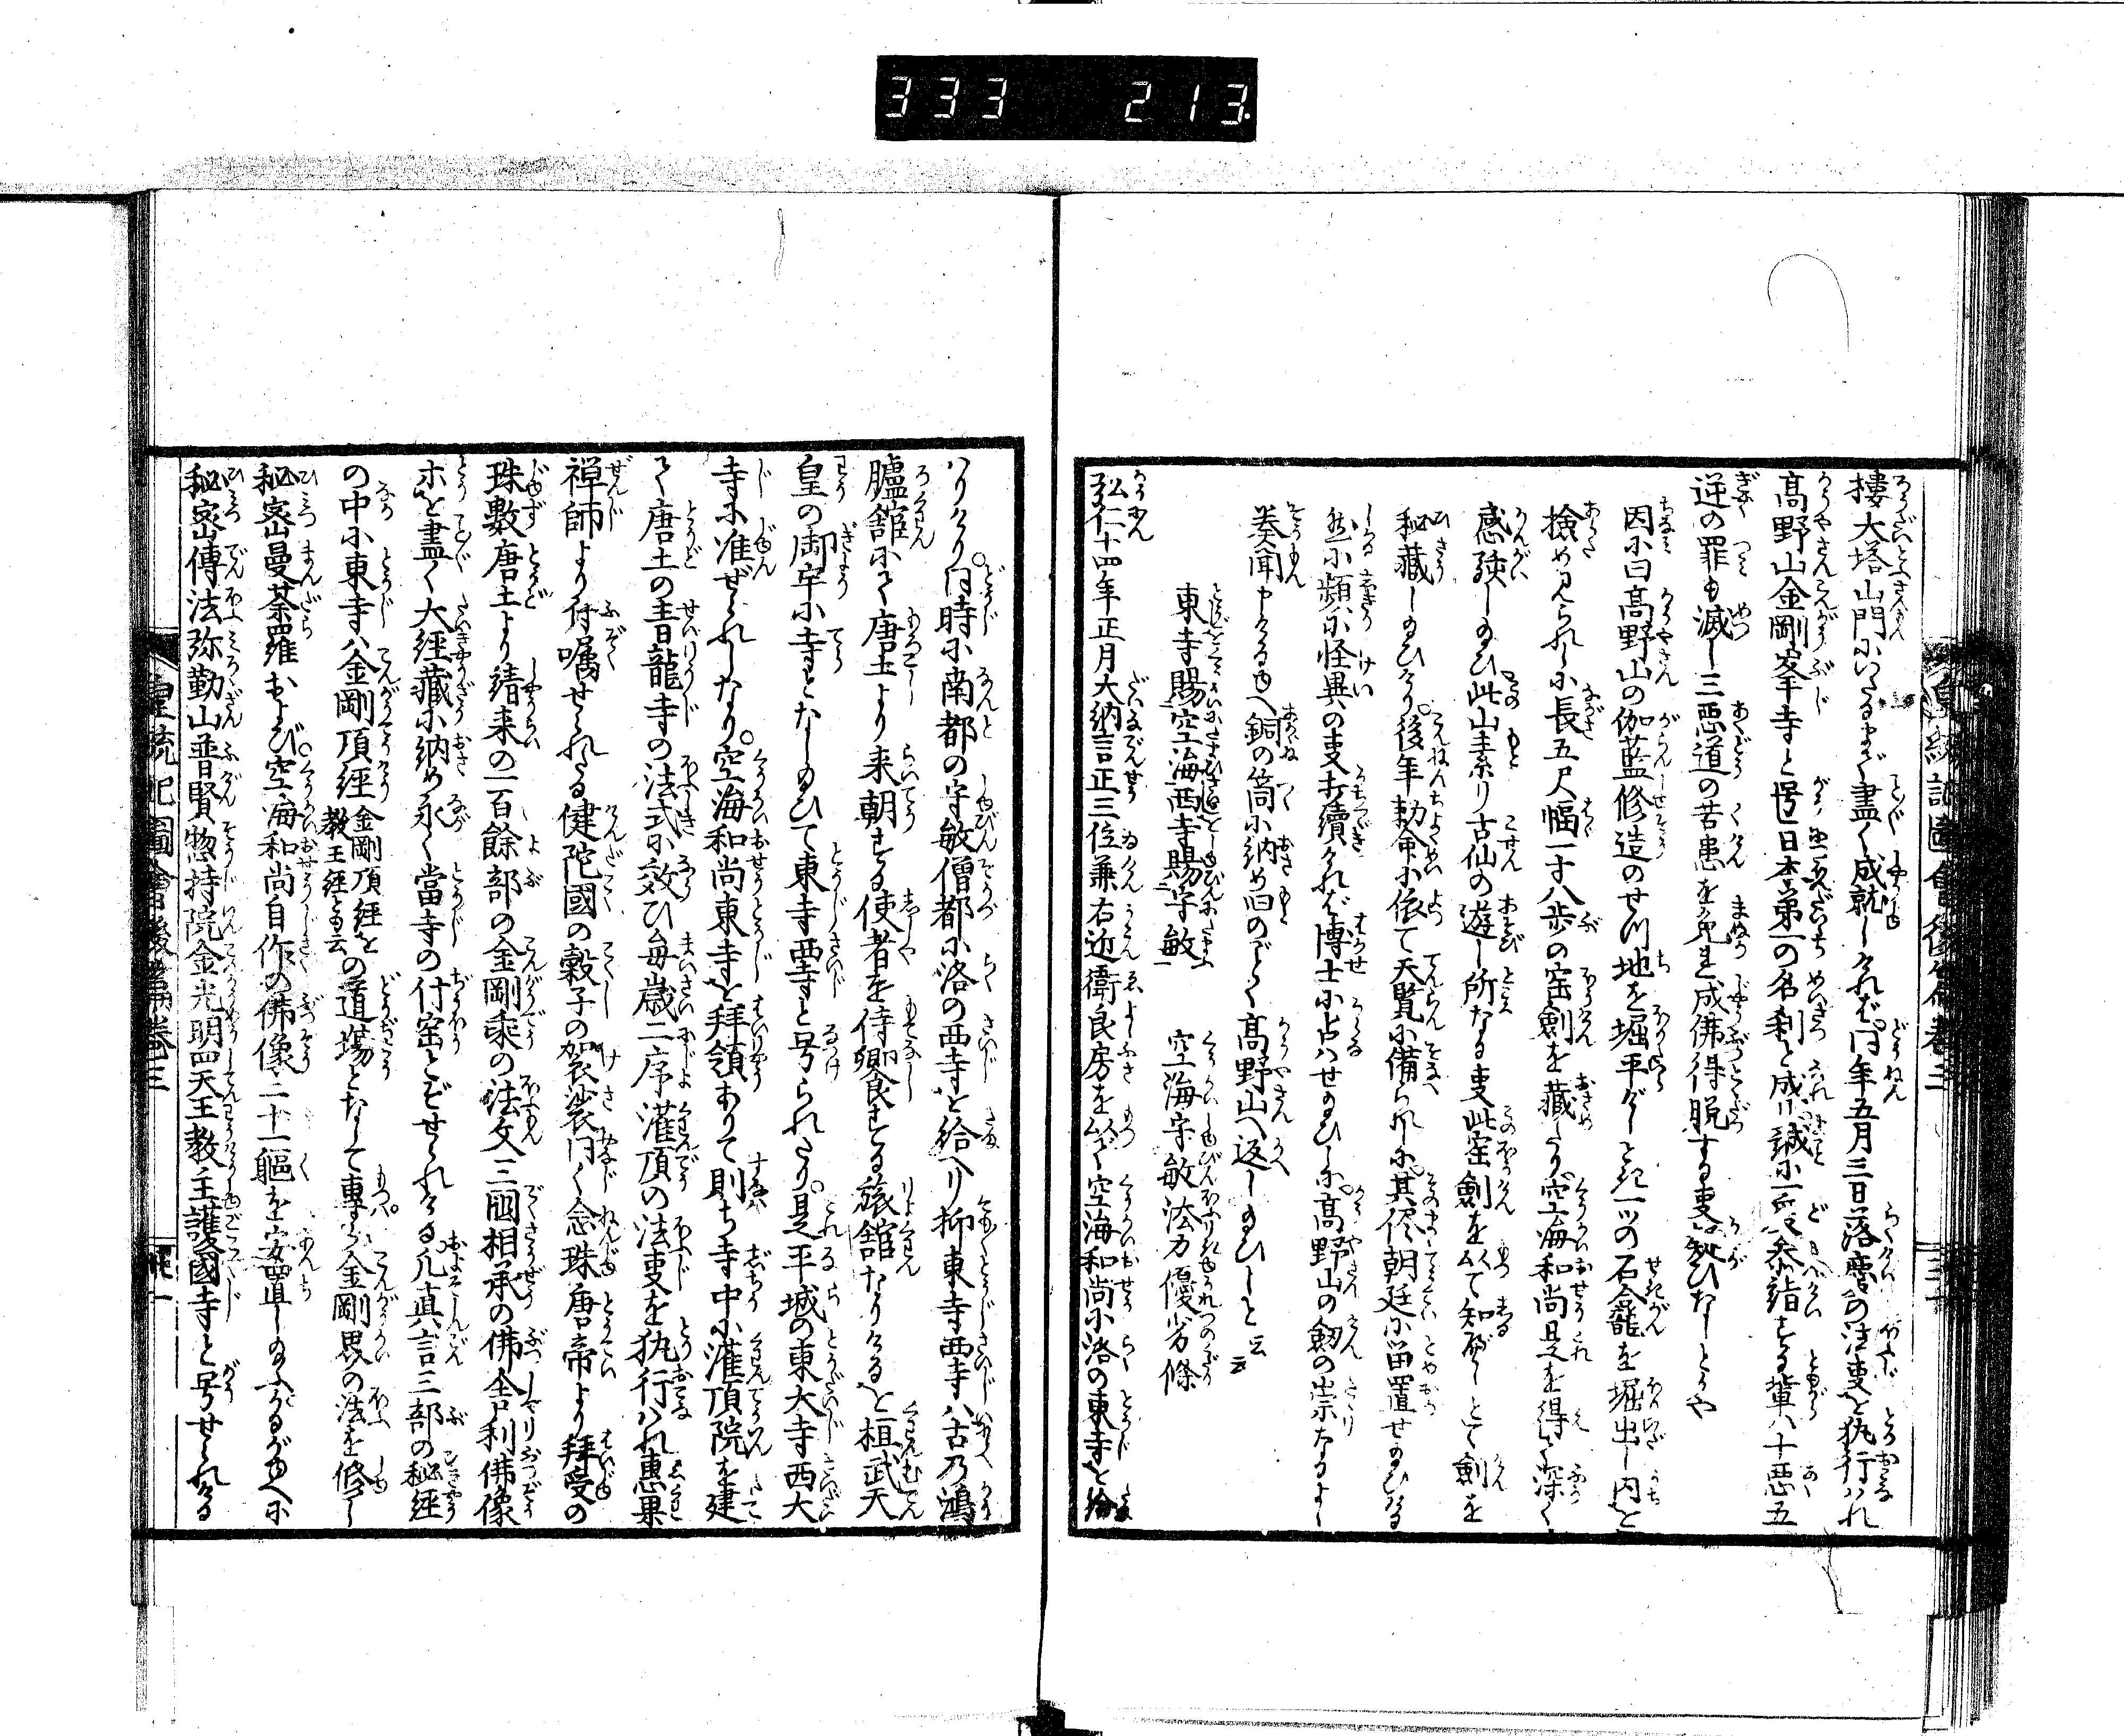 333 213
樓大塔山門にいたるまで盡く成就しければ同年五月三日落慶の法事を執行はれ
高野山金剛峯寺と号し日本第一の名刹と成け誠に一度参詣する輩は十悪五
逆の罪も滅し三悪道の苦患を免れ成佛得脱する事疑ひなしとかや
因に曰高野山の伽藍修造のせつ地を堀平ぐるとき一ツの石龕を堀出し内を
撿め見られしに長五尺幅一寸八歩の宝劍を藏したり空海和尚是を得て深く
感玦し給ひ此山素り古仙の遊し所なる事此宝劍を以て知べしとて劍を
秘藏し給ひけり後年勅命に依て天覧に備られしに其侭朝廷に留置せ給ひける
然に頻に怪異の事打續ければ博士に占はせ給ひしに高野山の劔の祟なるよし
奏聞申けるゆへ銅の筒に納め旧のごとく高野山へ返し給ひしと云云
東寺賜空海西寺賜守敏 空海守敏法力優劣條
弘仁十四年正月大納言正三位兼右近衛良房を以て空海和尚に洛の東寺を給
はりけり同時に南都の守敏僧都に洛の西寺を給へり抑東寺西寺は古乃鴻
臚舘にて唐土より来朝する使者を待饗食する旅舘なりけるを桓武天
皇の御宇に寺となし給ひて東寺西寺と号られたり是平城の東大寺西大
寺に准ぜられしなり空海和尚東寺を拜領ありて則ち寺中に灌頂院を建
て唐土の青龍寺の法式に效ひ毎歳二序灌頂の法事を執行はれ恵果
禅師より付嘱せられたる健陀國の穀子の袈裟同く念珠唐帝より拜受の
珠數唐土より請来の一百餘部の金剛乘の法文三國相承の佛舎利佛像
ホを盡く大經藏に納め永く當寺の付宝とぞせられける凡真言三部の秘經
の中に東寺は金剛頂經金剛頂經を教王經とも云の道塲となして専ら金剛界の法を修し
秘密曼荼羅および空海和尚自作の佛像二十一軀を安置し給ふがゆへに
秘密傳法弥勒山普賢惣持院金光明四天王教王護國寺と号せられける
皇統記圖會後篇巻三